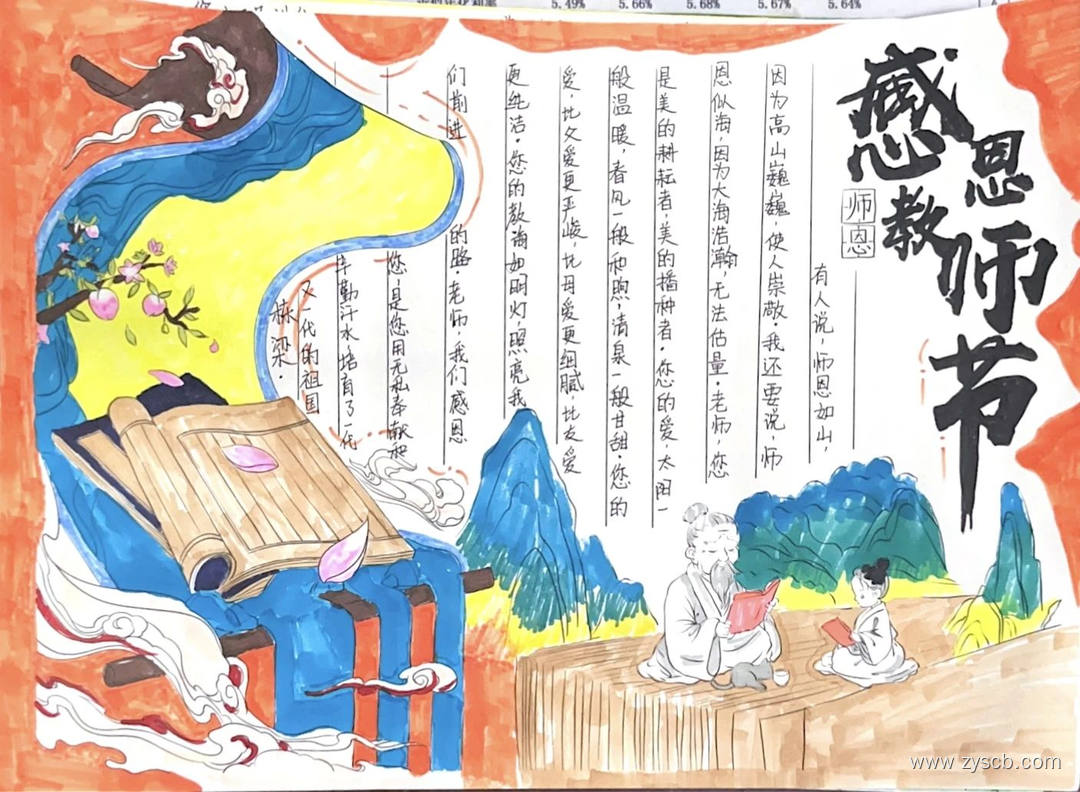 5.49% 5.66% 5.68% 5.67% 5.64%
感恩教师节
师恩
有人说,师恩如山,
因为高山巍巍,使人崇敬.我还要说,师
恩似海,因为大海浩瀚,无法估量.老师,您
是美的耕耘者,美的播种者.您的爱,太阳一
般温暖,春风一般和煦,清泉一般甘甜.您的
爱,比父爱更严峻,比母爱更细腻,比友爱
更纯洁.您的教诲如明灯,照亮我
们前进的路.老师,我们感恩
您,是您用无私奉献和
辛勤汗水培育了一代
又一代的祖国
栋梁.
www.zyscb.com